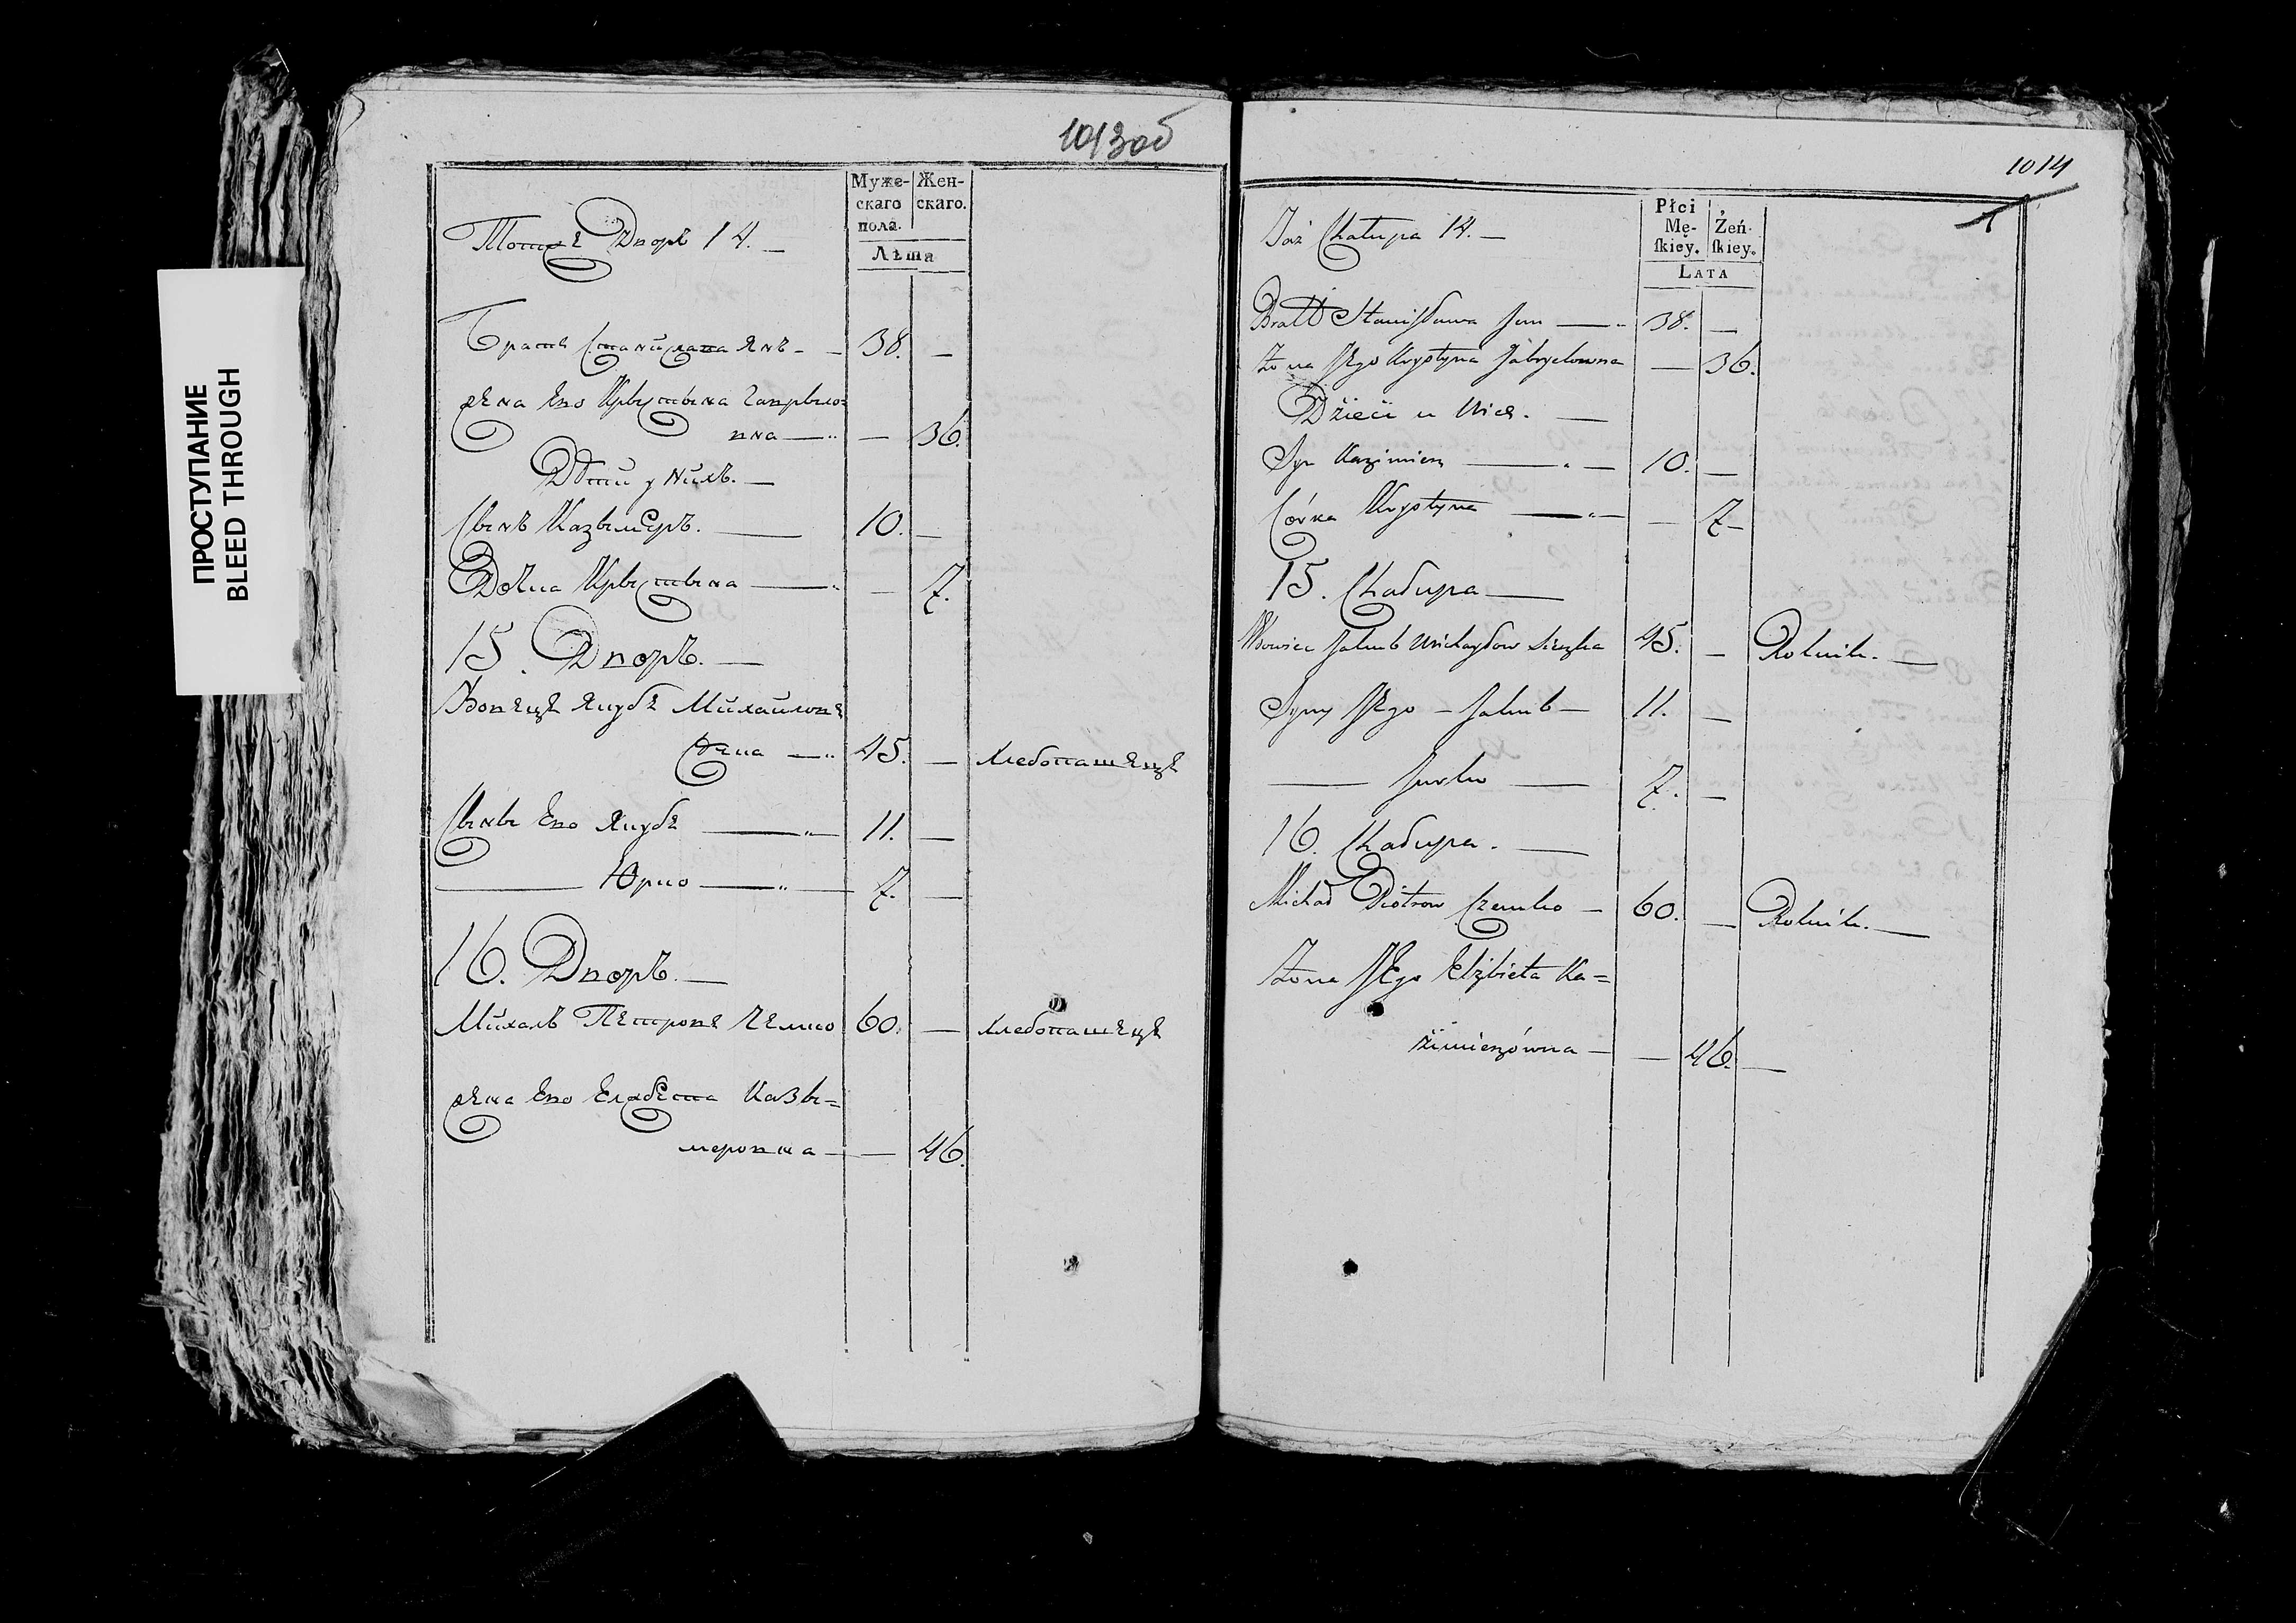 ПРОСТУПАНИЕ
BLEED THROUGH
1013об
Муже-
скаго
пола.
Жен-
скаго.
Лѣта
Тотже Дворъ 14. —
Братъ Станислава Янъ - — 38. —
жена Его Крыстына Гаврыло=
вна — — 36.
Дѣти у нихъ. —
Сынъ Казымеръ. — 10. —
Дочка Крыстына — — 7.
15. Дворъ. —
Вдовецъ Якубъ Михайловъ
45. — хлебопашецъ
Сыны Его Якубъ — 11. —
— Юрко — 7. —
16. Дворъ. —
Михалъ Петровъ Чемко 60. — хлебопашецъ
жена Его Елжбета Казы=
меровна — — 46.
1014
Płci
Mę-
ſkiey.
Żeń-
ſkiey.
LATA
Taż Chałupa 14. —
Bratt Stanisława Jan — 38. —
Żona Jego Krystyna Gabryelowna — 36.
Dzieci u Nich. —
Syn Kazimierz — 10. —
Córka Krystyna — — 7 —
15. Chałupa —
Wdowiec Jakub Michayłow 45. — Rolnik. —
Syny Jego — Jakub — 11. —
— Jurko — 7. —
16. Chałupa. —
Michał Piotrow Czemko — 60. — Rolnik. —
Żona Jego Elżbieta Ka=
zimierzówna — — 46. —